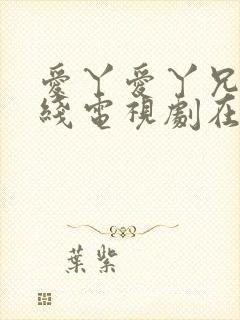 愛丫愛丫兄
綫電視劇在
葉紫